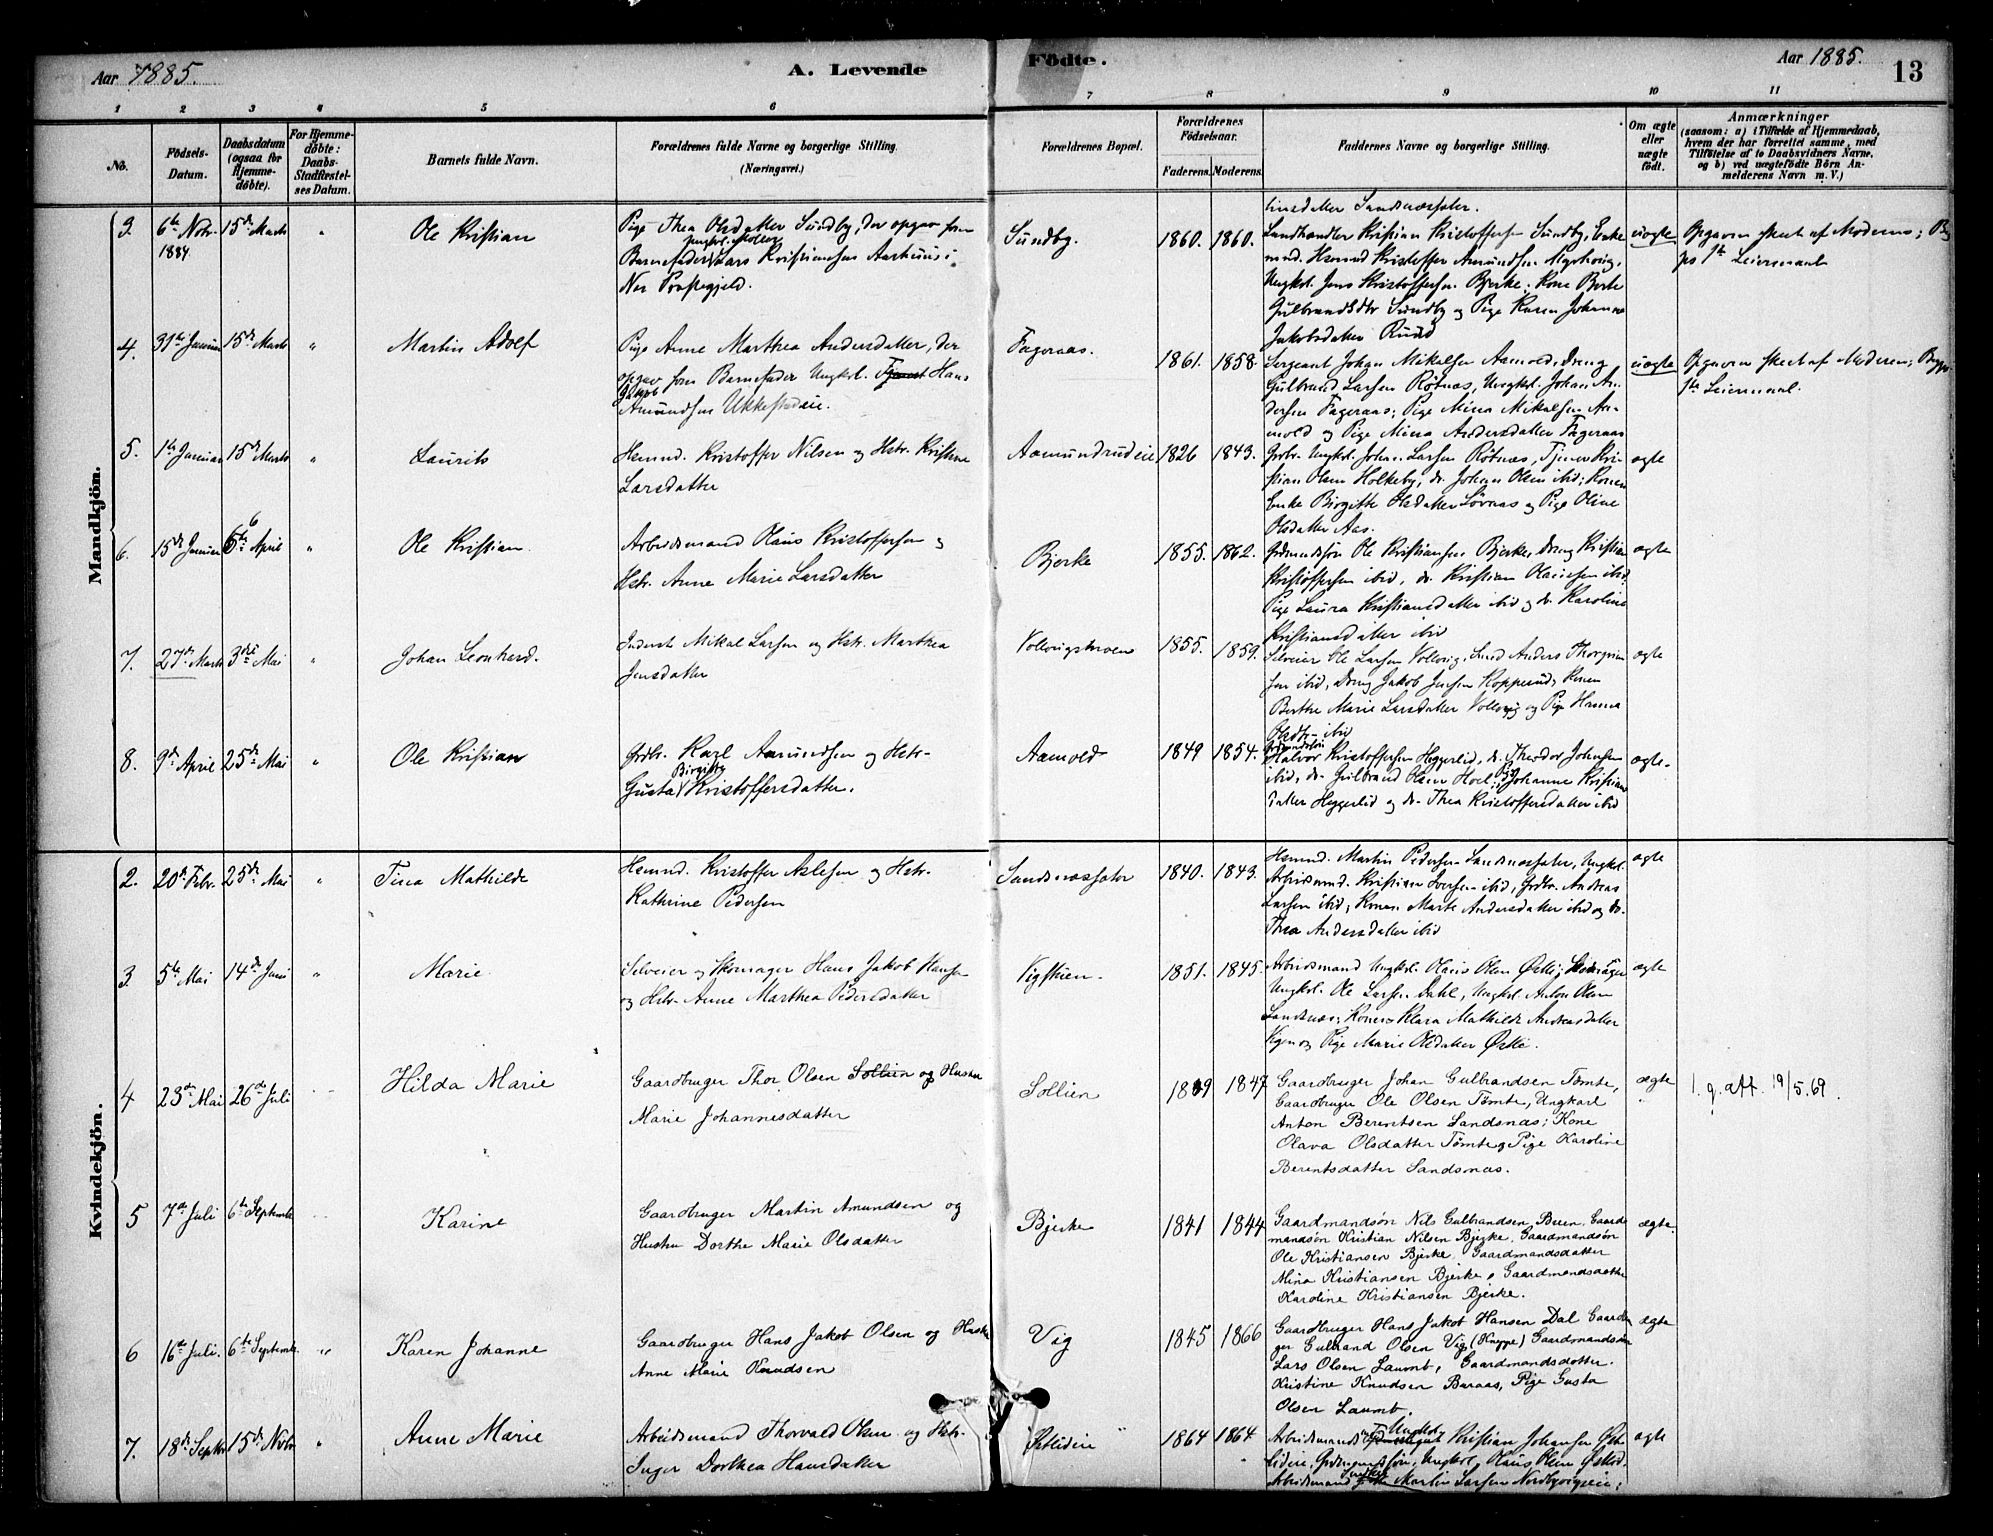 Aar 1885.
A. Levende
Födte.
Aar 1885.
13
1 2 3 4 5 6 7 8 9 10 11
No.
Födsels-
Datum.
Daabsdatum
(ogsaa for
Hjemme-
döbte).
For Hjemme-
döbte:
Daabs-
Stadfæstel-
ses Datum.
Barnets fulde Navn.
Forældrenes fulde Navne og borgerlige Stilling.
(Næringsvei.)
Forældrenes Bopæl.
Forældrenes
Födselsaar.
Faderens. Moderens.
Faddernes Navne og borgerlige Stilling.
Om ægte
eller
uægte
födt.
Anmærkninger
(saasom: a) i Tilfælde af Hjemmedaab,
hvem der har forrettet samme, med
Tilföielse af to Daabsvidners Navne,
og b) ved uægtefödte Börn An-
melderens Navn m. V.)
Mandkjön.
3. 6te Novr. 1884 15de Marts " Ole Kristian
Pige Thea Olsdatter Sundby, der opgav som
Barnefader Lars Kristiansen Aarhuus i
Nes Præstegjeld.
Sundby. 1860. 1860.
Landhandler Kristian Kristoffersen Sundby, Enke
mnd. Hsmnd Kristoffer Amundsen
Ungkl. Jens Kristoffersen Bjerke; Kone Berte
Gulbrandsdtr Sundby og Pige Karen Johanne
Jakobsdatter Ruud
uægte
Opgaven skeet af Moderen;
1ste Leiermaal
4. 31te Januar 15de Marts " Martin Adolf
Pige Anne Marthea Andersdatter, der
opgav som Barnefader Ungkl. Hans
Jakob
Amundsen Ukkestadeie.
Fageraas. 1861. 1858.
Sergeant Johan Mikalsen Aamold, Dreng
Gulbrand Larsen Rötnæs, Ungkl. Johan An-
dersen Fageraas; Pige Mina Mikalsen Aa-
mold og Pige Mina Andersdatter Fageraas
uægte
Opgaven skeet af Moderen; Begges
1ste Leiermaal.
5. 1ste Januar 15de Marts " Laurits
Hsmnd. Kristoffer Nilsen og Hstr. Kristine
Larsdatter
Aamundrudeie 1826 1843.
Grbr. Ungkl. Johan Larsen Rötnæs, Tjener Kri-
stian Olsen Holkeby, do. Johan Olsen ibid; Konen
Enke Birgitte Olsdatter og Pige Oline
Olsdatter Aas.
ægte
6. 15de Januar 6te April " Ole Kristian
Arbeidsmand Olaus Kristoffersen og
Hstr. Anne Marie Larsdatter
Bjerke 1855. 1862.
Grdmandssön Ole Kristiansen Bjerke, Dreng Kristian
Kristoffersen ibid, do. Kristian Olaussen ibid.
Pige Laura Kristiansdatter ibid og do. Karoline
Kristiansdatter ibid
ægte
7. 27de Marts 3die Mai " Johan Leonhard.
Inderst Mikal Larsen og Hstr. Marthea
Jensdatter
1855. 1859.
Selveier Ole Larsen Vollevig, Anders Thorgrim-
sen ibid, Dreng Jakob Jensen Kopperud; Konen
Berthe Marie Larsdatter Vollevig og Pige Hanna
Olsdtr. ibid
ægte
8. 9de April 25de Mai " Ole Kristian
Grdbr. Karl Aamundsen og Hstr.
Birgitte
Gusta Kristoffersdatter.
Aamold 1849 1854.
Halvor Kristoffersen Heggerlid, do. Theodor Johnsen
ibid, do. Gulbrand Olsen Hoel; Pige Johanne Kristians
datter Heggerlid og do. Thea Kristoffersdatter ibid
ægte.
Kvindekjön.
2. 20de Febr. 25de Mai " Tina Mathilde
Hsmnd. Kristoffer Aslesen og Hstr.
Kathrine Pedersen
Sandsnæssæter 1840. 1843.
Hsmnd. Martin Pedersen Sandsnæssæter, Ungkl.
Arbeidsmnd. Kristian Iversen ibid, Grdbr. Andreas
Larsen ibid; Konen Marte Andersdatter ibid og do.
Thea Andersdatter ibid
ægte
3. 5te Mai 14de Juni " Marie
Selveier og Skomager Hans Jakob Hansen
og Hstr. Anne Marthea Pedersdatter
Vigstien 1851. 1845.
Arbeidsmand Ungkl. Olaus Olsen Østli; Skomager
Ungkl. Ole Larsen Dahl, Ungkl. Anton Olsen
Sandsnæs; Konen Klara Mathilde Andreasdatter
Vigen og Pige Marie Olsdatter Østli.
ægte
4 23de Mai 26de Juli Hilda Marie
Gaardbruger Thor Olsen Sollien og Hustru
Marie Johannesdatter
Sollien 1849 1847
Gaardbruger Johan Gulbrandsen Tømte,
Gaardbruger Ole Olsen Tömte, Ungkarl
Anton Berentsen Sandsnæs; Kone
Olava Olsdatter Tömte, Pige Karoline
Berentsdatter Sandsnæs.
ægte
1. g. att 19/5.69.
5 7de Juli 6te Septembr Karine
Gaardbruger Martin Amundsen og
Hustru Dorthe Marie Olsdatter
Bjerke 1841 1844
Gaardmandsön Nils Gulbrandsen Buen, Gaard-
mandsön Kristian Nilsen Bjerke, Gaardmandsön
Ole Kristiansen Bjerke, Gaardmandsdatter
Mina Kristiansen Bjerke, Gaardmandsdatter
Karoline Kristiansen Bjerke.
ægte.
6 16te Juli. 6te Septembr " Karen Johanne
Gaardbruger Hans Jakob Olsen og Hustru
Anne Marie Knudsen
Vig 1845 1866
Gaardbruger Hans Jakob Hansen Dal, Gaardbru-
ger Gulbrand Olsen Vig (Knappe) Gaardmandsön
Lars Olsen Laumb, Gaardmandsdatter.
Kristine Knudsen Buraas, Pige Gusta
Olsen Laumb.
ægte
7. 18de Septbr 15de Novbr " Anne Marie
Arbeidsmand Thorvald Olsen og Hstr.
Inger Dorthea Hansdatter
Østlideie 1864 1864.
Arbeidsmand Ungkl. Kristian Johansen Øst-
lideie, Ungkl. Olaus Olsen Østlid.
Arbeidsmand Martin Larsen Nordbyvigeie;
ægte